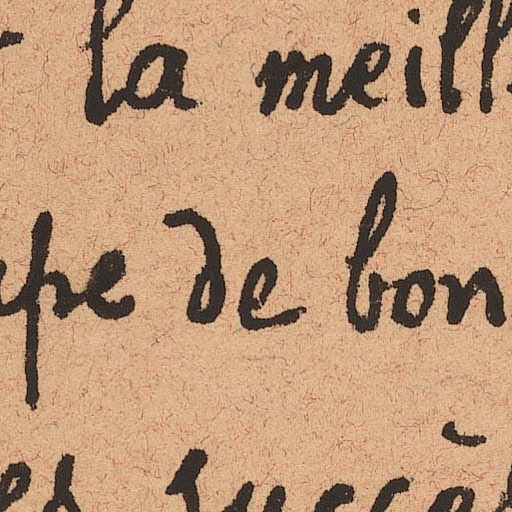 la meill
pe de bon
es succè